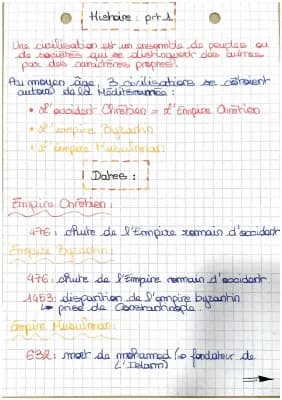 Histoire : prt.1
Une civilisation est un ensemble de peuples ou
de sociétés qui se distinguent des autres
par des caractères propres.
Au moyen âge, 3 civilisations se côtoient
autour de la Méditerranée :
• L'occident Chrétien = L'Empire Chrétien
• L'empire Byzantin
• L'empire Musulman
Dates :
Empire Chrétien :
476 : chute de l'Empire romain d'occident
Empire Byzantin :
476 : chute de l'Empire romain d'occident
1453 : disparition de l'empire byzantin
↳ prise de Constantinople.
Empire Musulman :
632 : mort de mohamed (→ fondateur de
L'Islam)